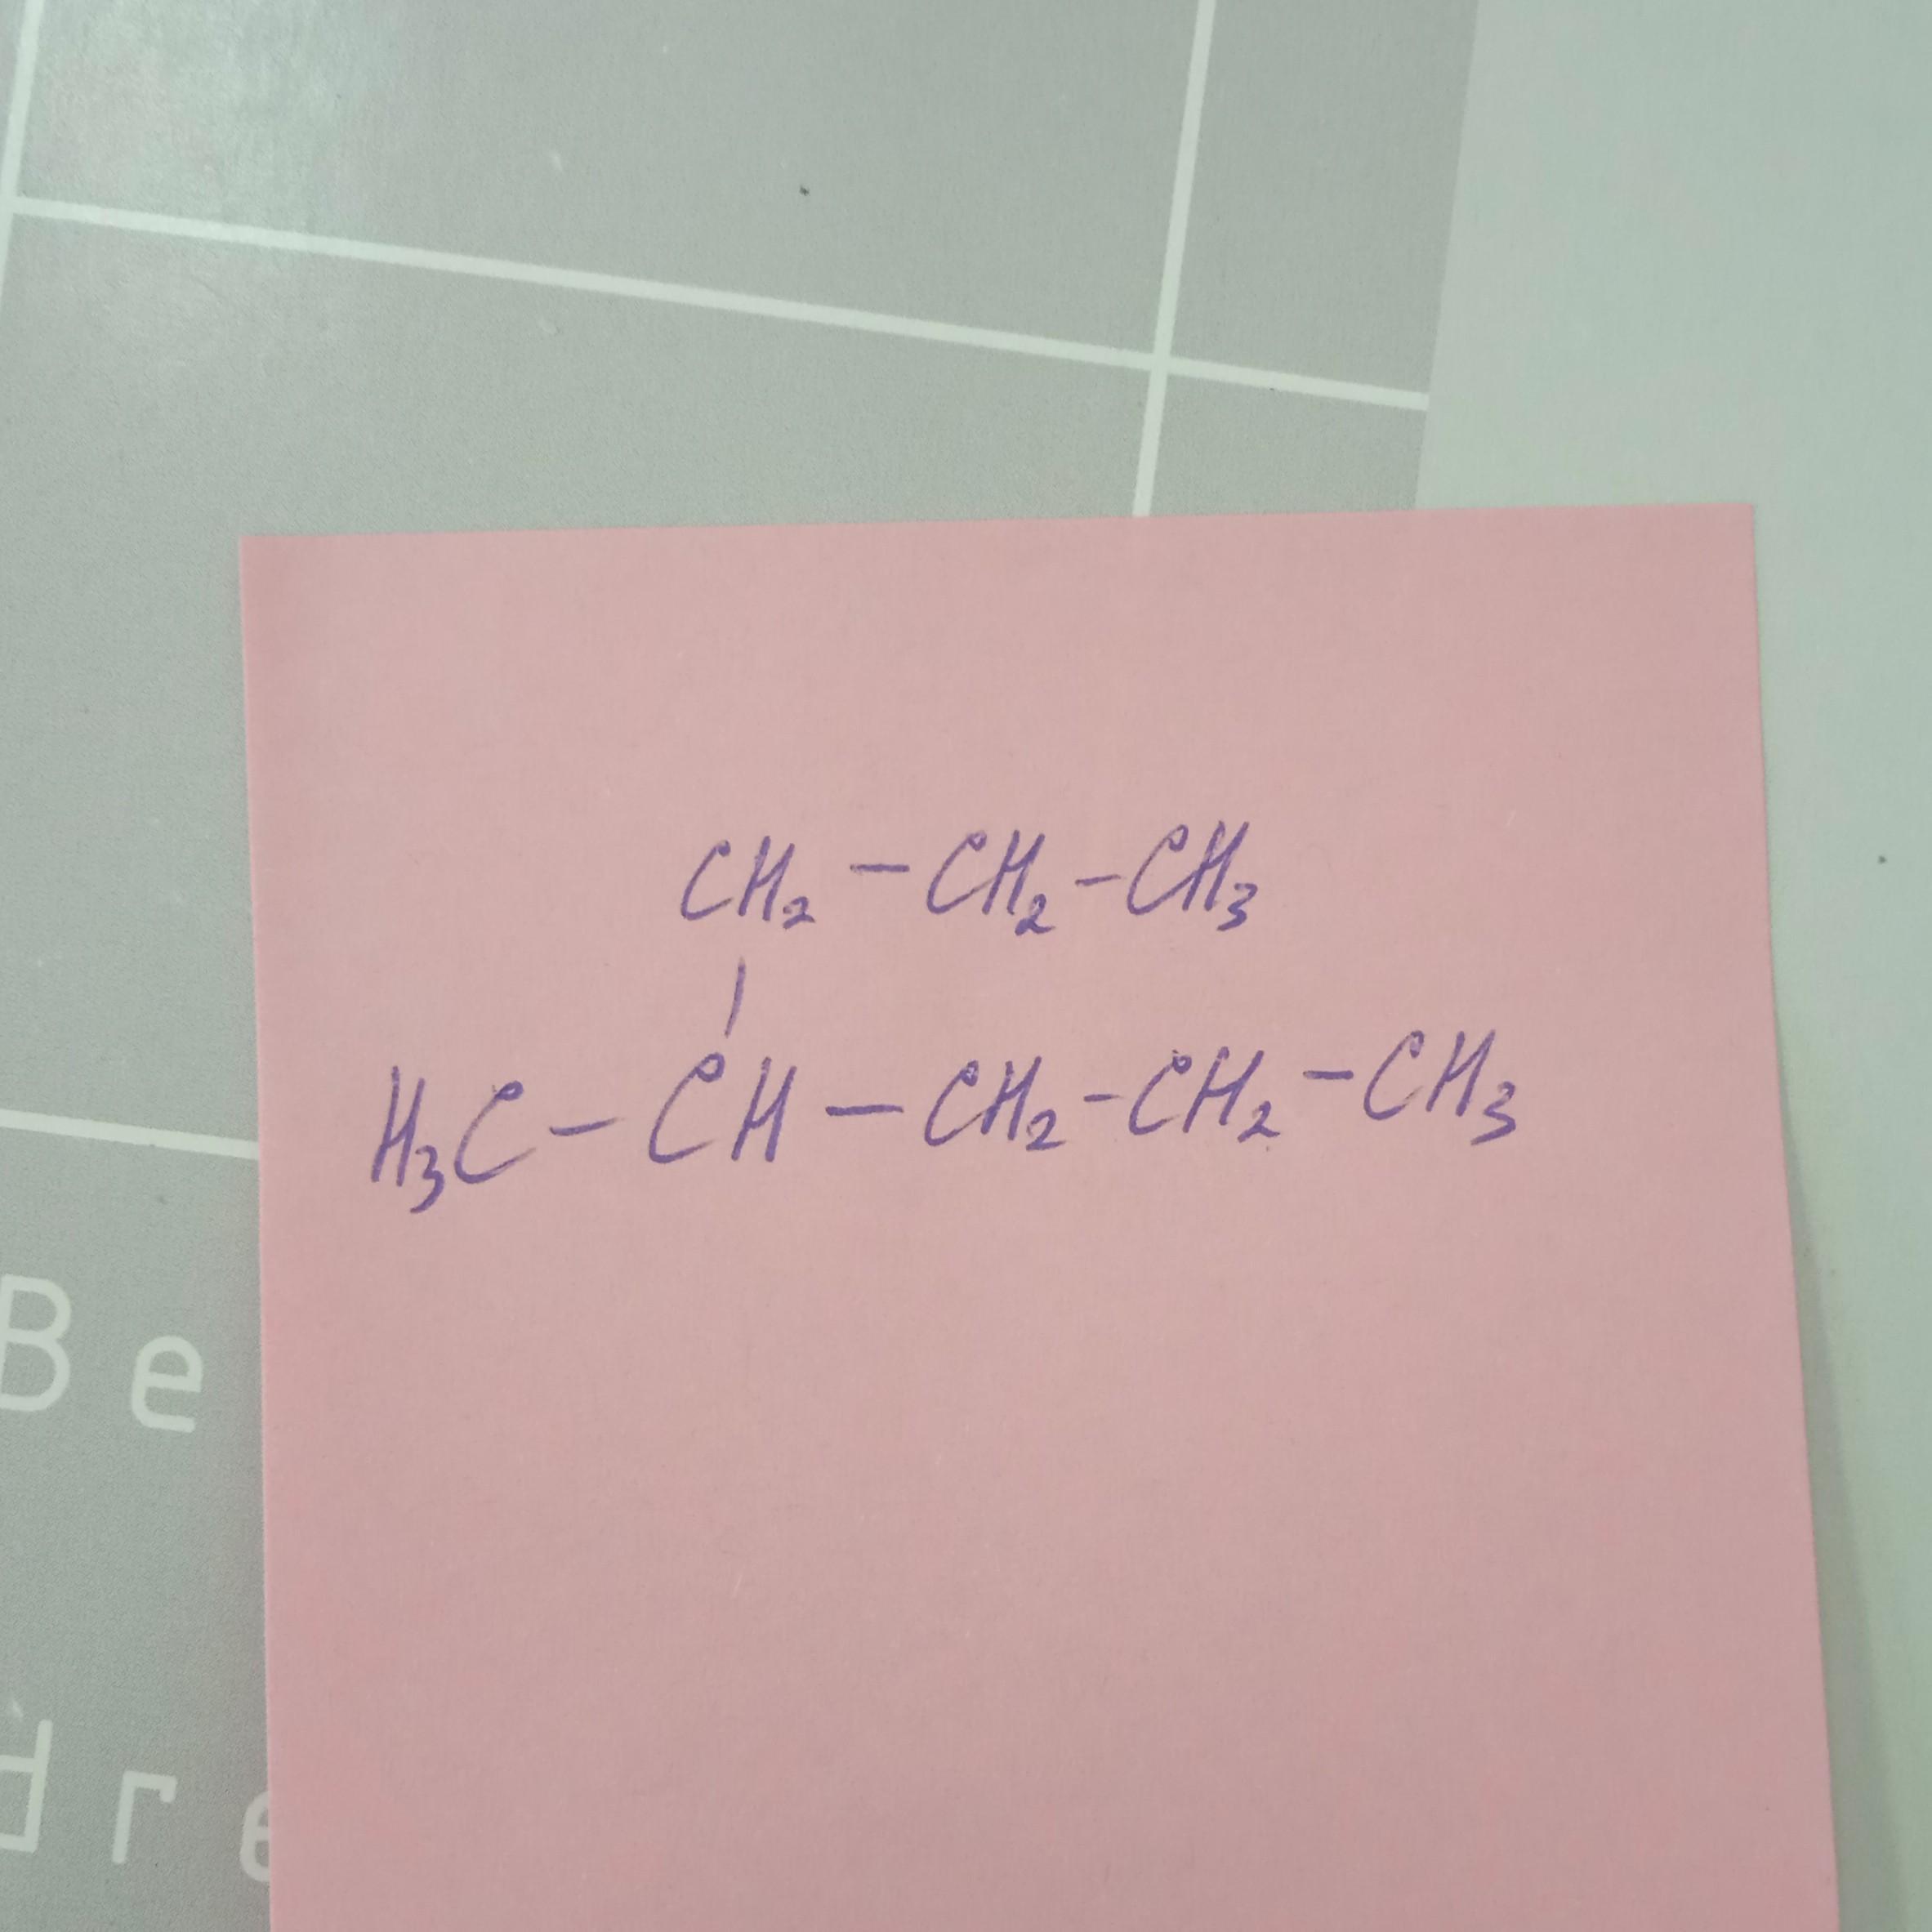 CH₂ – CH₂ – CH₃
|
H₃C – CH – CH₂ – CH₂ – CH₃
Be
dre